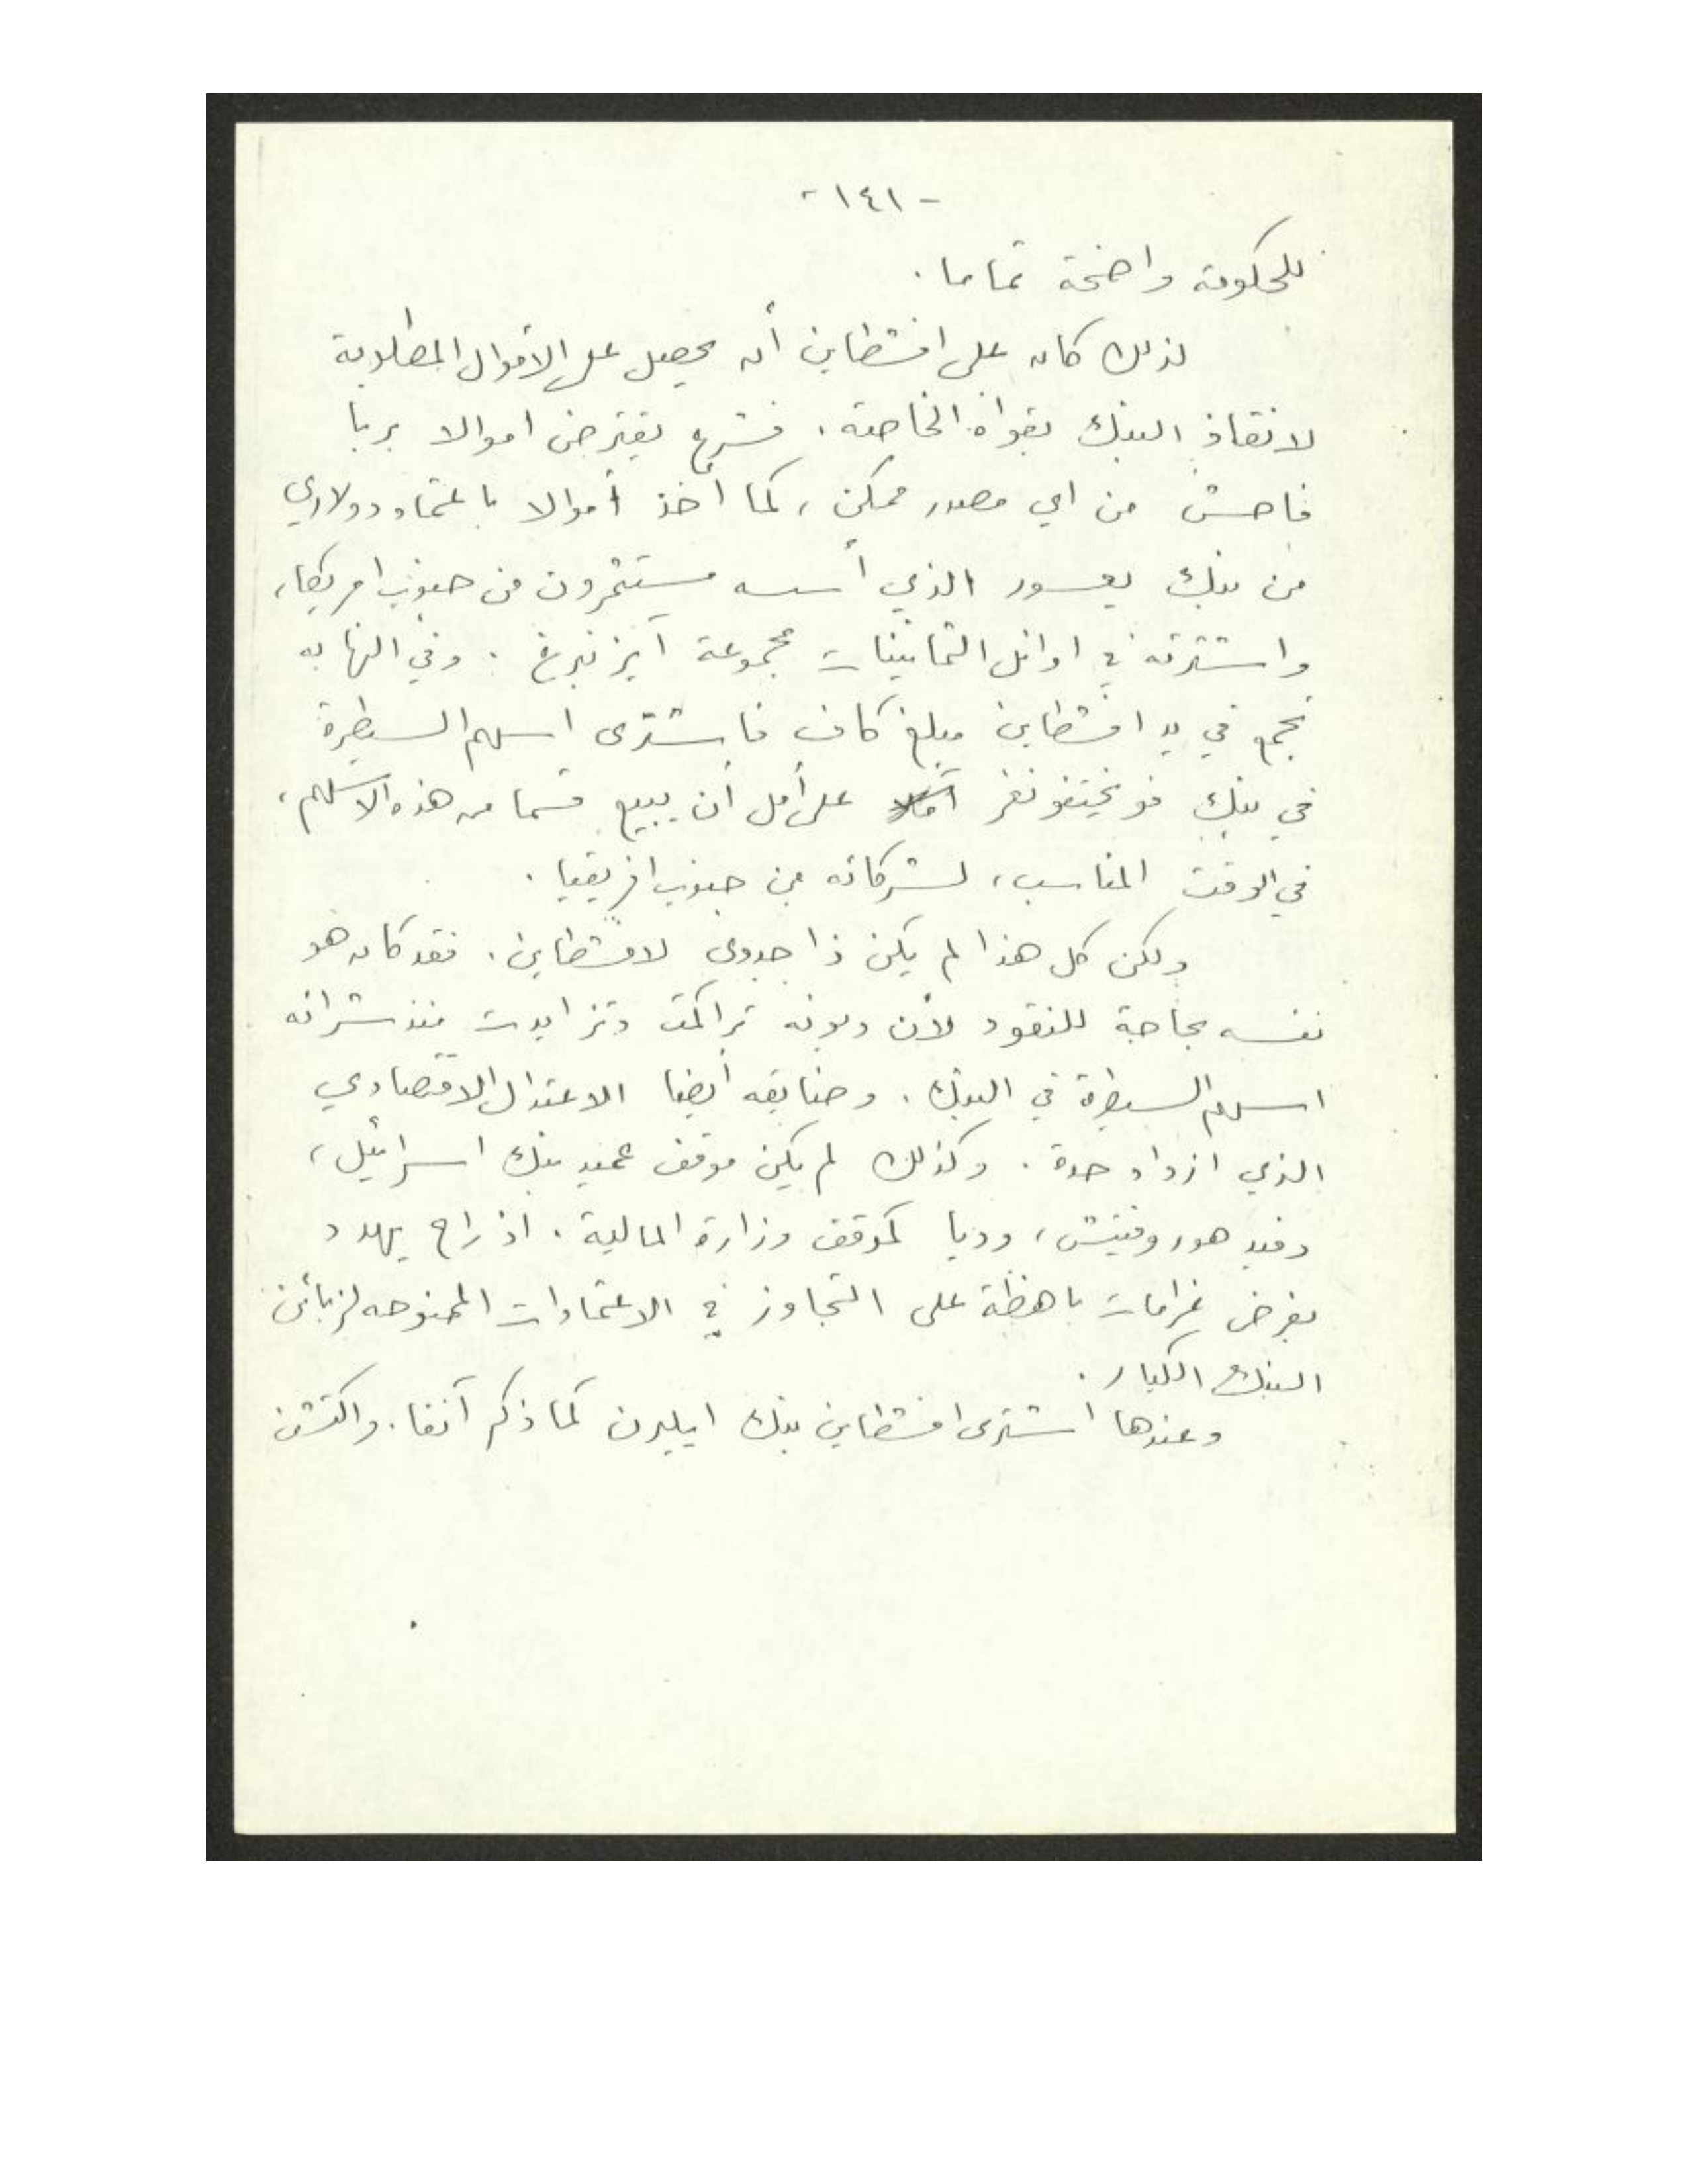 - ١٤١ -
للحكومة واضحة تماما .
لذلك كان على افشطاين أن يحصل على الأموال المطلوبة
لانقاذ البنك بقواه الخاصة . فشرع يقترض اموالا بربا
فاحش من اي مصدر ممكن ، كما أخذ أموالا باعتماد دولاري
من بنك يعسور الذي أسسه مستثمرون من جنوب امريكا ،
واشترته في اوائل الثمانينات مجموعة آيزنبرغ . وفي النهايه
تجمع في يد افشطاين مبلغ كاف فاشترى اسهم السيطرة
في بنك فويختفونغر على أمل أن يبيع قسما من هذه الاسهم ،
في الوقت المناسب ، لشركائه من جنوب افريقيا .
ولكن كل هذا لم يكن ذا جدوى لافشطاين . فقد كان هو
نفسه بحاجة للنقود لأن ديونه تراكمت وتزايدت منذ شرائه
اسهم السيطرة في البنك . وضايقه أيضا الاعتدال الاقتصادي
الذي ازداد حدة . وكذلك لم يكن موقف عميد بنك اسرائيل ،
دفيد هوروفيتش ، وديا كموقف وزارة المالية . اذ راح يهدد
بفرض غرامات باهظة على التجاوز في الاعتمادات الممنوحه لزبائن
البنك الكبار .
وعندها اشترى افشطاين بنك ايلرن كما ذكر آنفا . واكتشف